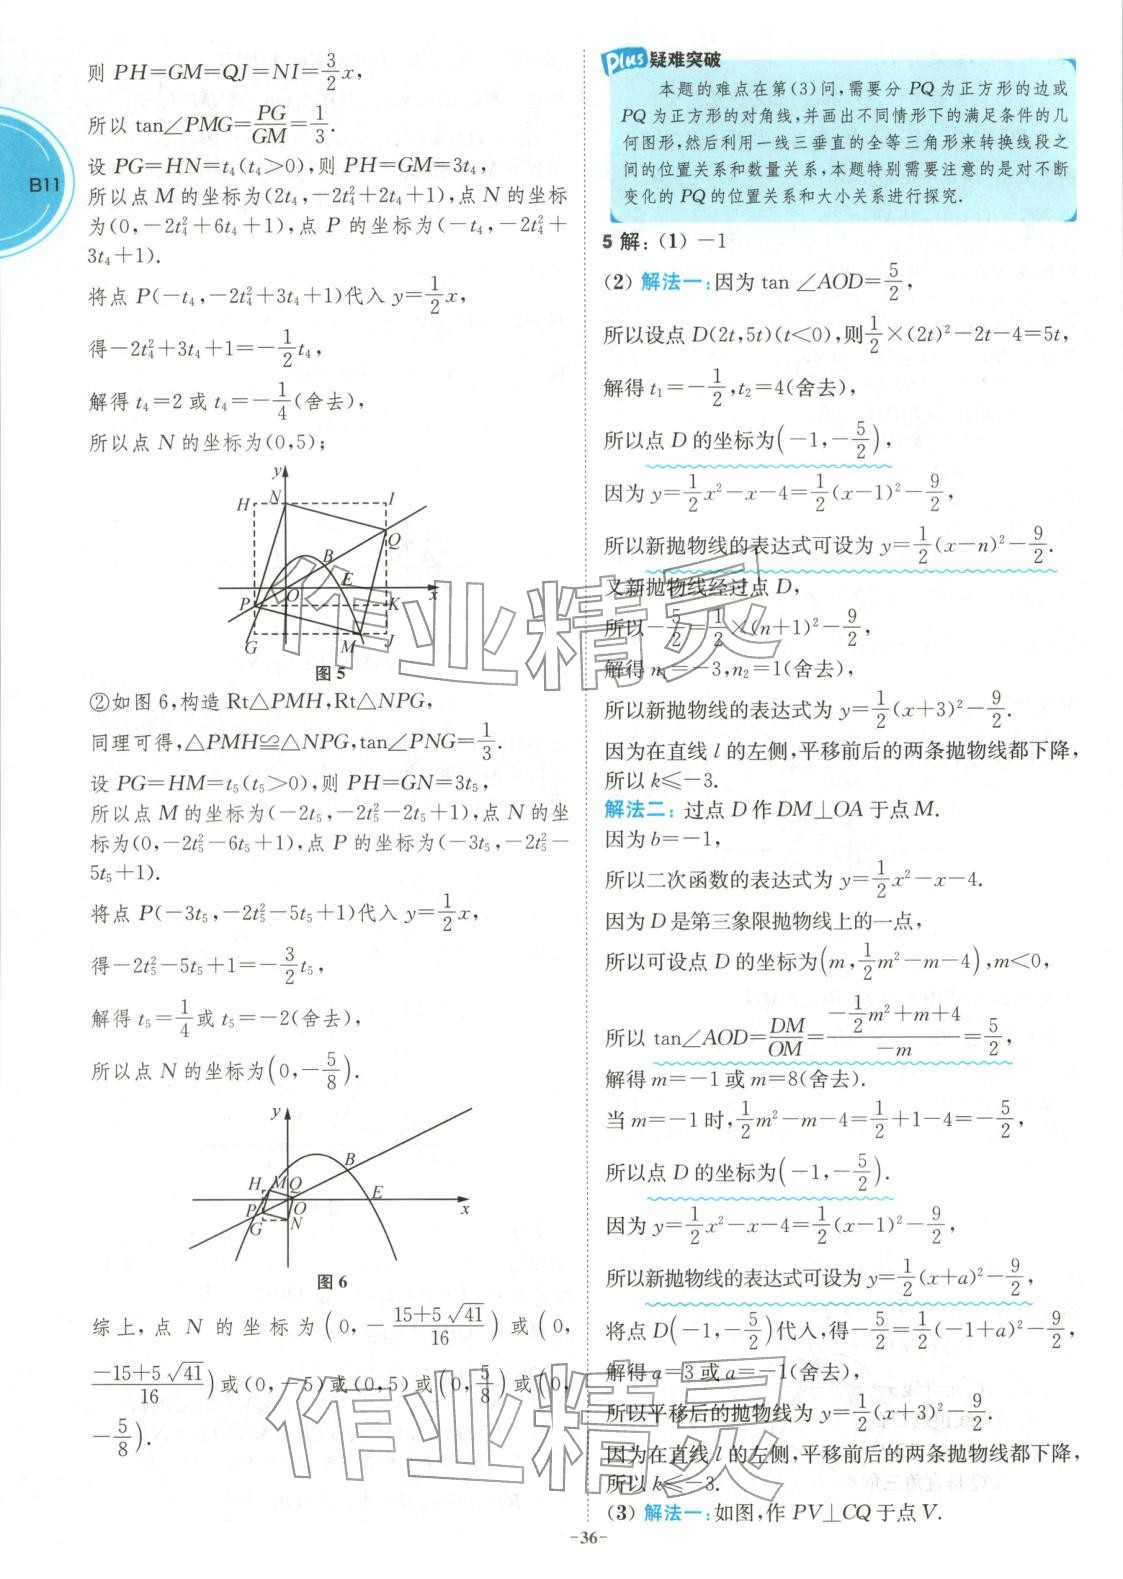 B11
则 PH=GM=QJ=NI=\frac{3}{2}x,
所以 tan∠PMG=\frac{PG}{GM}=\frac{1}{3}.
设 PG=HN=t₄(t₄>0),则 PH=GM=3t₄,
所以点 M 的坐标为(2t₄,-2t₄²+2t₄+1),点 N 的坐标
为(0,-2t₄²+6t₄+1),点 P 的坐标为(-t₄,-2t₄²+
3t₄+1).
将点 P(-t₄,-2t₄²+3t₄+1)代入 y=\frac{1}{2}x,
得-2t₄²+3t₄+1=-\frac{1}{2}t₄,
解得 t₄=2 或 t₄=-\frac{1}{4}(舍去),
所以点 N 的坐标为(0,5);
y
H N I
Q
B
E
P O K x
G M J
图 5
②如图 6,构造 Rt△PMH,Rt△NPG,
同理可得,△PMH≌△NPG,tan∠PNG=\frac{1}{3}.
设 PG=HM=t₅(t₅>0),则 PH=GN=3t₅,
所以点 M 的坐标为(-2t₅,-2t₅²-2t₅+1),点 N 的坐
标为(0,-2t₅²-6t₅+1),点 P 的坐标为(-3t₅,-2t₅²-
5t₅+1).
将点 P(-3t₅,-2t₅²-5t₅+1)代入 y=\frac{1}{2}x,
得-2t₅²-5t₅+1=-\frac{3}{2}t₅,
解得 t₅=\frac{1}{4}或 t₅=-2(舍去),
所以点 N 的坐标为(0,-\frac{5}{8}).
y
B
H M Q E
P O x
G N
图 6
综上,点 N 的坐标为(0,-\frac{15+5\sqrt{41}}{16})或(0,
\frac{-15+5\sqrt{41}}{16})或(0,-5)或(0,5)或(0,\frac{5}{8})或(0,
-\frac{5}{8}).
Plus 疑难突破
本题的难点在第(3)问,需要分 PQ 为正方形的边或
PQ 为正方形的对角线,并画出不同情形下的满足条件的几
何图形,然后利用一线三垂直的全等三角形来转换线段之
间的位置关系和数量关系,本题特别需要注意的是对不断
变化的 PQ 的位置关系和大小关系进行探究.
5 解:(1)-1
(2)解法一:因为 tan ∠AOD=\frac{5}{2},
所以设点 D(2t,5t)(t<0),则\frac{1}{2}×(2t)²-2t-4=5t,
解得 t₁=-\frac{1}{2},t₂=4(舍去),
所以点 D 的坐标为(-1,-\frac{5}{2}),
因为 y=\frac{1}{2}x²-x-4=\frac{1}{2}(x-1)²-\frac{9}{2},
所以新抛物线的表达式可设为 y=\frac{1}{2}(x-n)²-\frac{9}{2}.
又新抛物线经过点 D,
所以-\frac{5}{2}=\frac{1}{2}×(n+1)²-\frac{9}{2},
解得 n₁=-3,n₂=1(舍去),
所以新抛物线的表达式为 y=\frac{1}{2}(x+3)²-\frac{9}{2}.
因为在直线 l 的左侧,平移前后的两条抛物线都下降,
所以 k≤-3.
解法二:过点 D 作 DM⊥OA 于点 M.
因为 b=-1,
所以二次函数的表达式为 y=\frac{1}{2}x²-x-4.
因为 D 是第三象限抛物线上的一点,
所以可设点 D 的坐标为(m,\frac{1}{2}m²-m-4),m<0,
所以 tan∠AOD=\frac{DM}{OM}=\frac{-\frac{1}{2}m²+m+4}{-m}=\frac{5}{2},
解得 m=-1 或 m=8(舍去).
当 m=-1 时,\frac{1}{2}m²-m-4=\frac{1}{2}+1-4=-\frac{5}{2},
所以点 D 的坐标为(-1,-\frac{5}{2}).
因为 y=\frac{1}{2}x²-x-4=\frac{1}{2}(x-1)²-\frac{9}{2},
所以新抛物线的表达式可设为 y=\frac{1}{2}(x+a)²-\frac{9}{2},
将点 D(-1,-\frac{5}{2})代入,得-\frac{5}{2}=\frac{1}{2}(-1+a)²-\frac{9}{2},
解得 a=3 或 a=-1(舍去),
所以平移后的抛物线为 y=\frac{1}{2}(x+3)²-\frac{9}{2}.
因为在直线 l 的左侧,平移前后的两条抛物线都下降,
所以 k≤-3.
(3)解法一:如图,作 PV⊥CQ 于点 V.
-36-
作业精灵
作业精灵